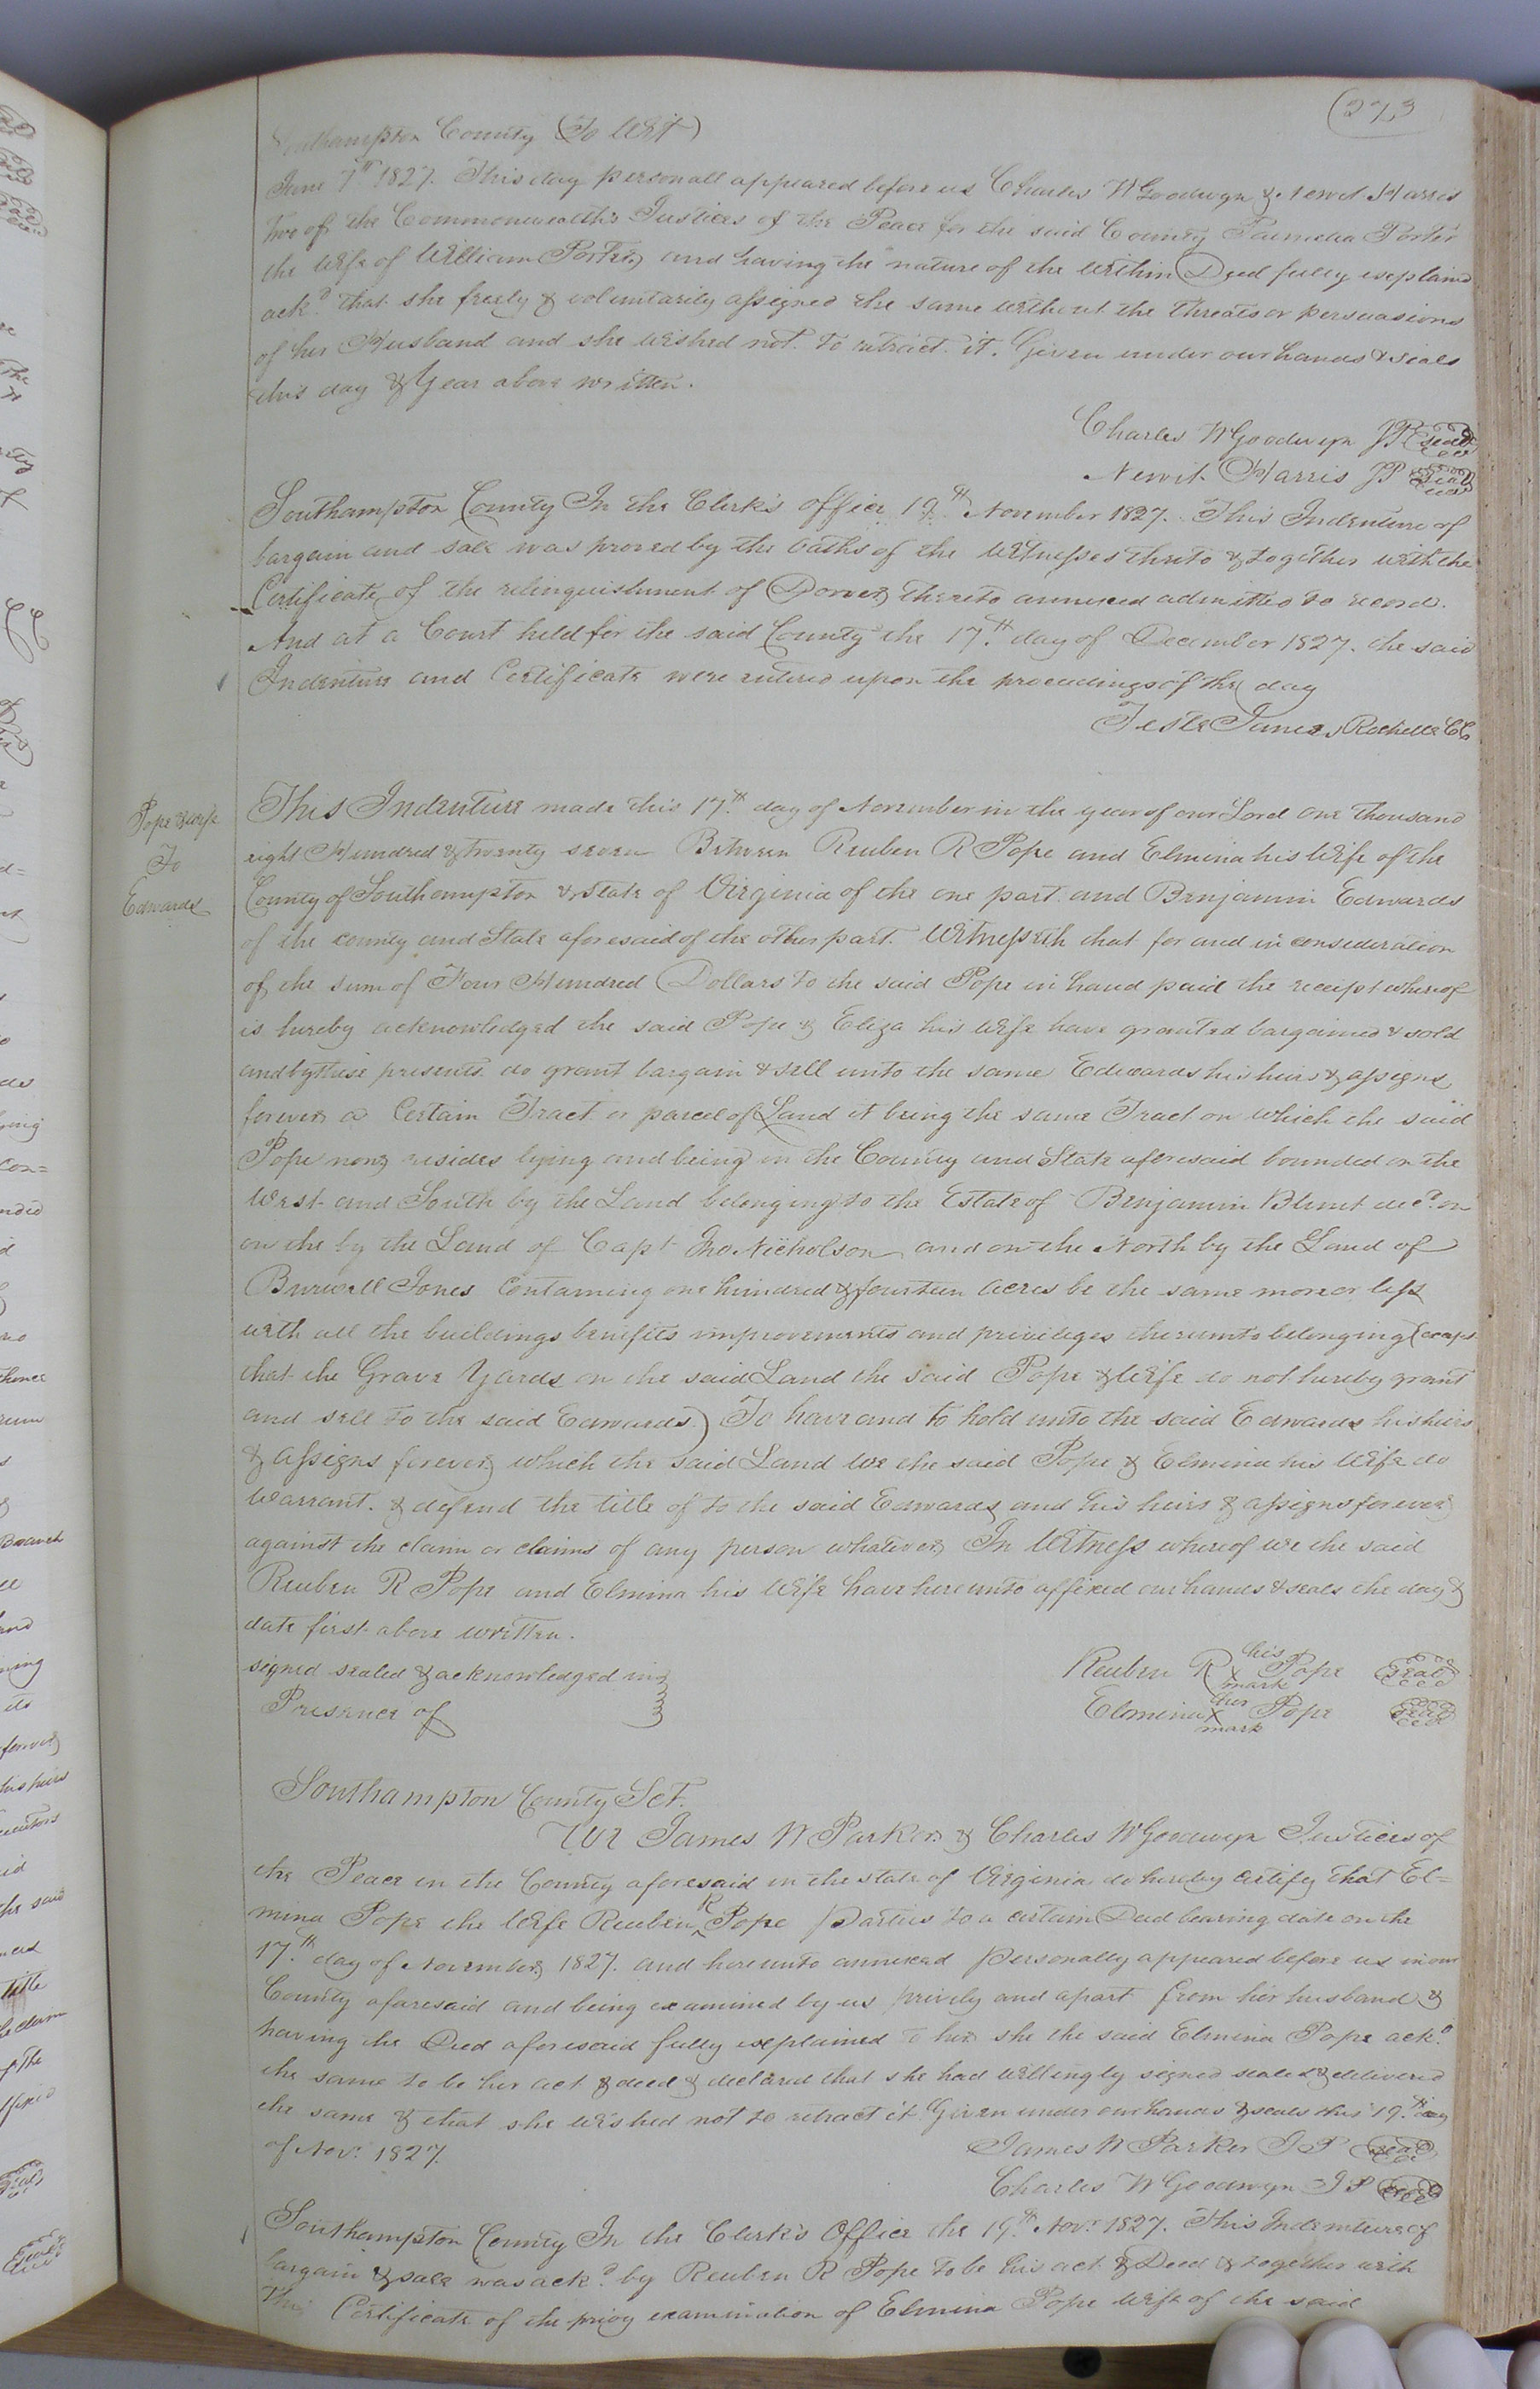 273
Southampton County (To Wit)
June 7th 1827. This day personall appeared before us Charles W Goodwyn & Newit Harris
two of the Commonwealth's Justices of the Peace for the said County Pamelia Porter
the Wife of William Porter, and having the nature of the within Deed fully explaind
ackd that she freely & voluntarily assigned the same without the threats or persuasions
of her Husband and she wished not to retract it. Given under our hands & seals
this day & Year above written.
Charles W Goodwyn JP Seal
Newit Harris JP Seal
Southampton County In the Clerk's office 19th November 1827. This Indenture of
bargain and sale was proved by the oaths of the Witnesses thereto & together with the
Certificate of the relinquishment of Dower thereto annexed admitted to record.
And at a Court held for the said County the 17th day of December 1827. the said
Indenture and Certificate were entered upon the proceedings of the day
Teste James Rochelle CC
Pope & wife
To
Edwards
This Indenture made this 17th day of November in the year of our Lord one thousand
eight Hundred & twenty seven Between Reuben R Pope and Elmina his Wife of the
County of Southampton & State of Virginia of the one part and Benjamin Edwards
of the county and State aforesaid of the other part. Witnesseth that for and in consideration
of the sum of Four Hundred Dollars to the said Pope in hand paid the receipt whereof
is hereby acknowledged the said Pope & Eliza his Wife have granted bargained & sold
and by these presents do grant bargain & sell unto the same Edwards his heirs & assigns
forever a Certain Tract or parcel of Land it being the same Tract on which the said
Pope now resides lying and being in the County and State aforesaid bounded on the
West and South by the Land belonging to the Estate of Benjamin Blunt decd on
on the by the Land of Capt Jno Nicholson and on the North by the Land of
Burwell Jones Containing one hundred & fourteen acres be the same more or less
with all the buildings benefits improvements and privileges thereunto belonging (except
that the Grave Yards on the said Land the said Pope & Wife do not hereby grant
and sell to the said Edwards) To have and to hold unto the said Edwards his heirs
& assigns forever which the said Land We the said Pope & Elmina his Wife do
Warrant. & defend the title of to the said Edwards and his heirs & assigns forever
against the claim or claims of any person whatever In Witness whereof we the said
Reuben R Pope and Elmina his Wife have hereunto affixed our hands & seals the day &
date first above written.
signed sealed & acknowledged in
Presence of
Reuben R his X mark Pope Seal
Elmina her X mark Pope Seal
Southampton County Sct.
We James W Parker & Charles W Goodwyn Justices of
the Peace in the County aforesaid in the state of Virginia do hereby certify that El=
mina Pope the Wife Reuben R Pope Parties to a certain Deed bearing date on the
17th day of November 1827. and hereunto annexed Personally appeared before us in our
County aforesaid and being examined by us privily and apart from her husband &
having the Deed aforesaid fully explained to her she the said Elmina Pope ackd
the same to be her act & deed & declared that she had Willingly signed sealed & delivered
the same & that she wished not to retract it Given under our hands & seals this 19th day
of Nov. 1827.
James W Parker J P Seal
Charles W Goodwyn J P Seal
Southampton County In the Clerk's Office the 19th Novr 1827. This Indenture of
bargain & sale was ackd by Reuben R Pope to be his act & Deed & together with
the Certificate of the privy examination of Elmina Pope Wife of the said